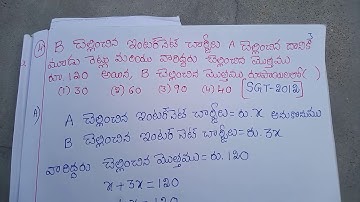 4) B చెల్లించిన ఇంటర్‌నెట్ చార్జీలు A చెల్లించిన దానికి
మూడు రెట్లు మరియు వారిద్దరు చెల్లించిన మొత్తము
రూ.120 అయిన, B చెల్లించిన మొత్తము రూపాయలలో ( )
(1) 30 (2) 60 (3) 90 (4) 40 [SGT-2012]
A) A చెల్లించిన ఇంటర్‌నెట్ చార్జీలు = రు. x అనుకొనుము
B చెల్లించిన ఇంటర్ నెట్ చార్జీలు = రు. 3x
వారిద్దరు చెల్లించిన మొత్తము = రు. 120
x + 3x = 120